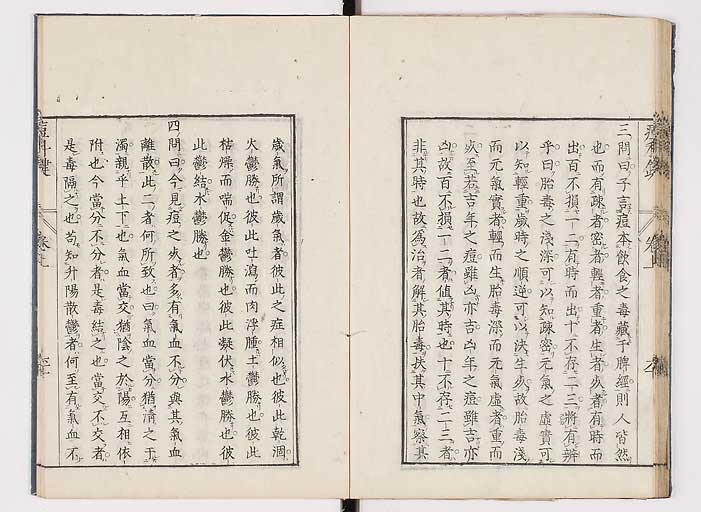 三問曰予言痘本飲食之毒藏于脾經則人皆然
也而有疎者密者輕者重者生者死者有時而
出百不損一二有時而出十不存二三將有辨
乎曰胎毒之淺深可以知疎密元氣之虛實可
以知輕重歲時之順逆可以決生死故胎毒淺
而元氣實者輕而生胎毒深而元氣虛者重而
死至若吉年之痘雖凶亦吉凶年之痘雖吉亦
凶故百不損一二者值其時也十不存一二三者
非其時也故為治者解其胎毒扶其中氣察其
歲氣所謂歲氣者彼此之症相似也彼此乾涸
火鬱勝也彼此吐瀉而肉浮腫土鬱勝也彼此
枯燥而喘促金鬱勝也彼此凝伏水鬱勝也彼
此鬱結木鬱勝也
四問曰今見痘之死者多有氣血不分與其氣血
離散此二者何所致也曰氣血當分猶清之于
濁親乎上下也氣血當交猶陰之於陽互相依
附也今當分不分者是毒結之也當交不交者
是毒隔之也苟知升陽散鬱者何至有氣血不